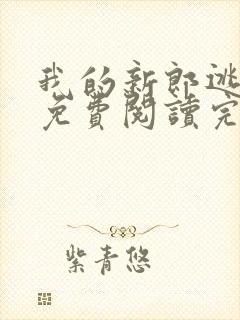 我的新郎逃
免費閱讀完
紫青悠